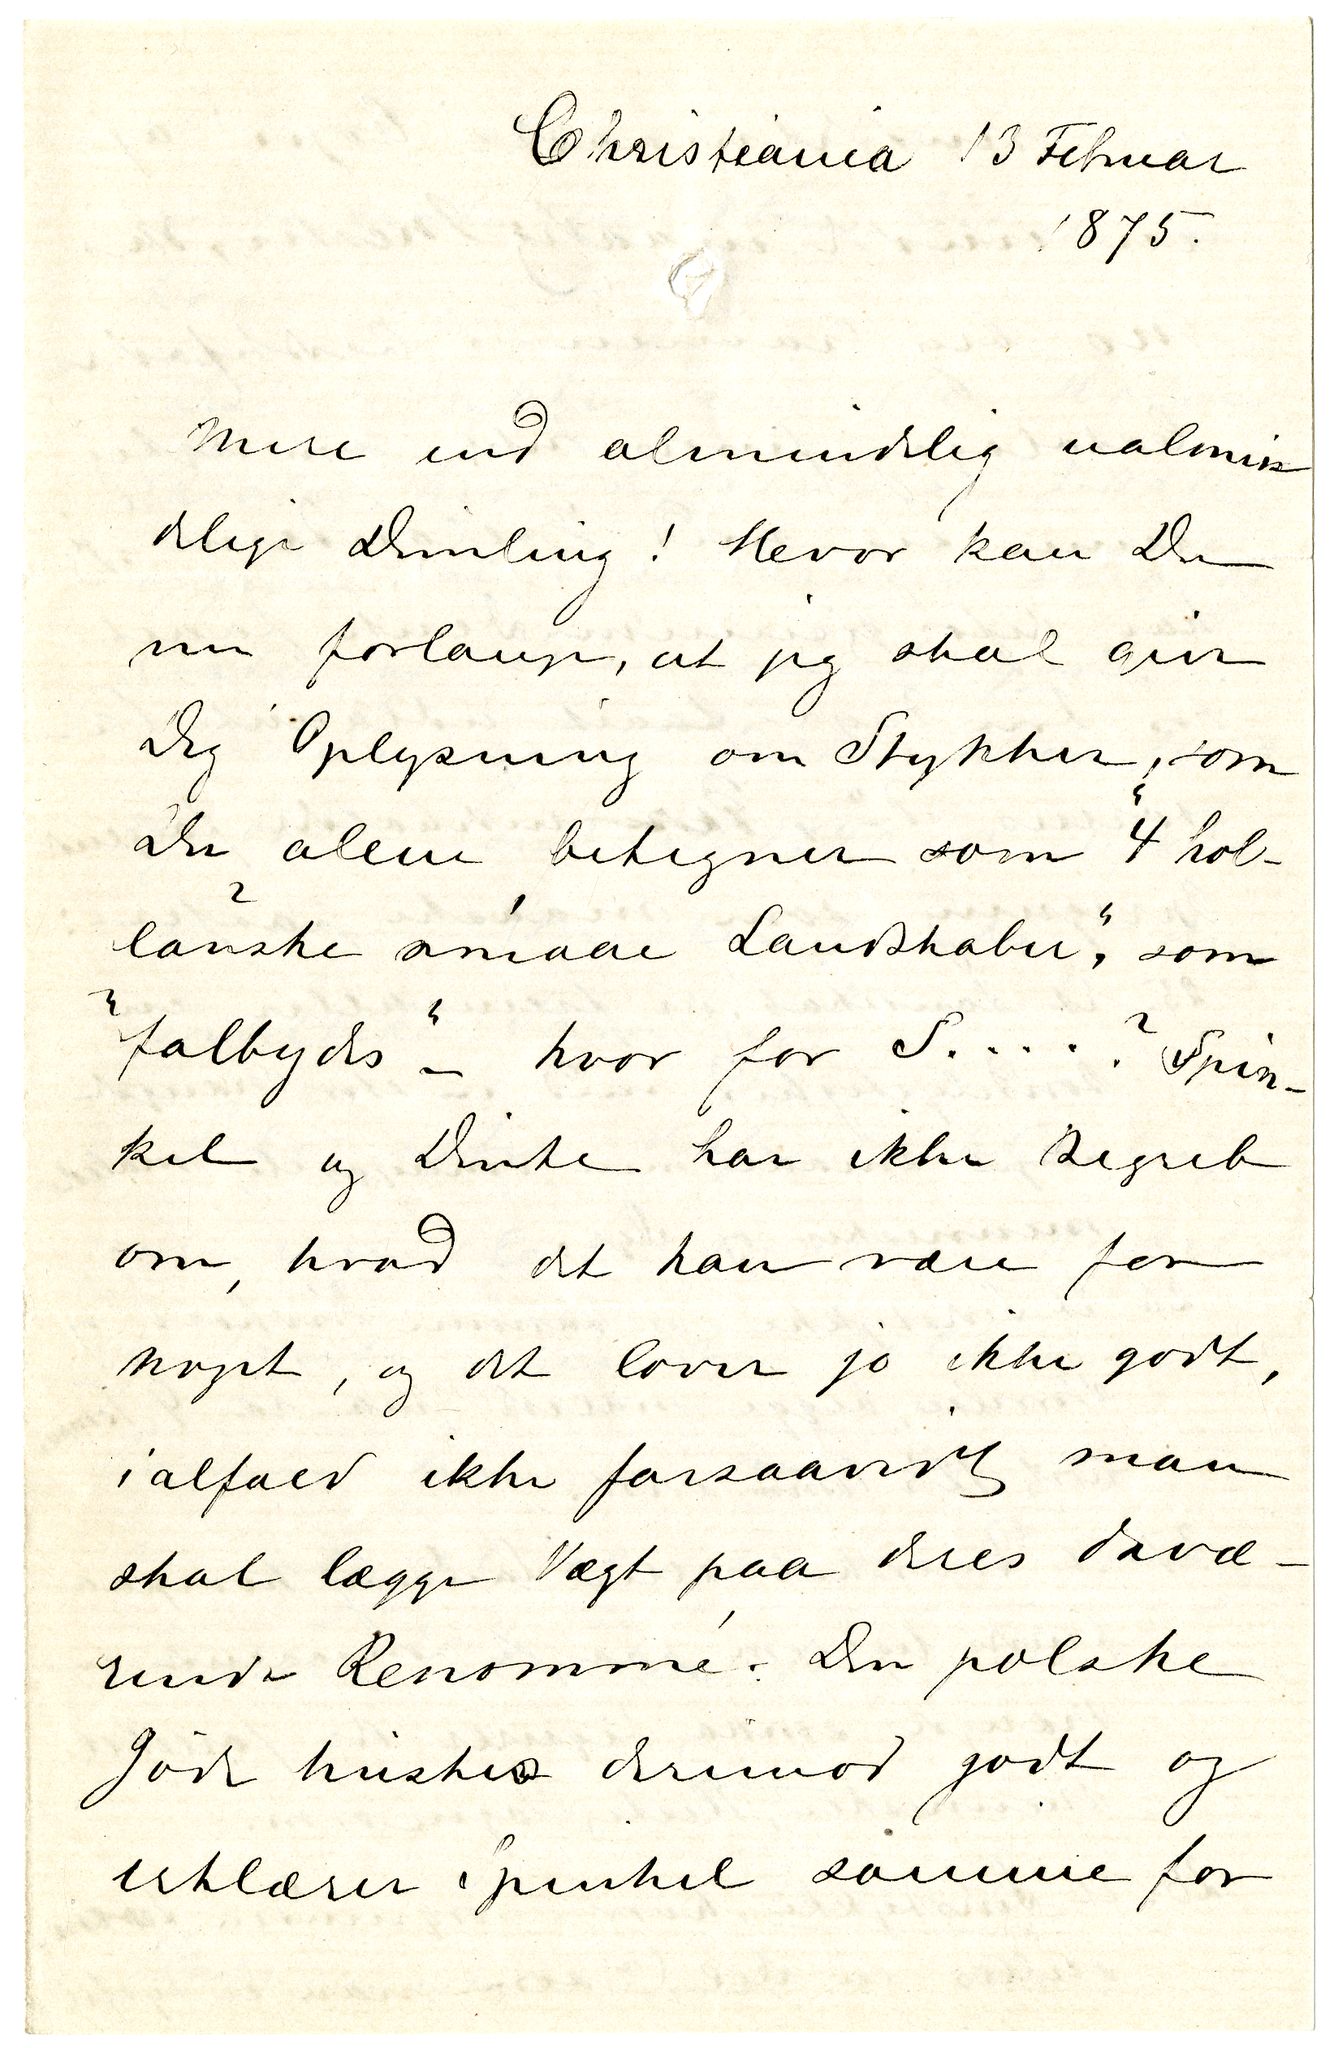 Christiania 13 Februar
1875.
Mere end almindelig ualmin
delige Dimling! Hvor kan Du
nu forlange, at jeg skal give
Dig Oplysning om Stykker, som
Du alene betegner som "4 hol-
lanske smaae Landskaber", som
"falbydes" – hvor for S.....? Spin-
kel og Dinke har ikke Begreb
om, hvad det kan være for
noget, og det lover jo ikke godt,
ialfald ikke forsaavidt man
skal lægge Vægt paa deres davæ-
rende Renommé. Den polske
Jöde huskes derimod godt og
erklærer Spinkel samme for